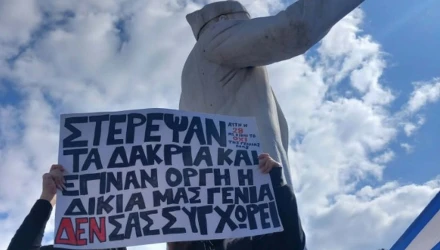 ΣΤΕΡΕΨΑΝ
ΤΑ ΔΑΚΡΙΑ ΚΑΙ
ΕΓΙΝΑΝ ΟΡΓΗ Η
ΔΙΚΙΑ ΜΑΣ ΓΕΝΙΑ
ΔΕΝ ΣΑΣ ΣΥΓΧΩΡΕΙ